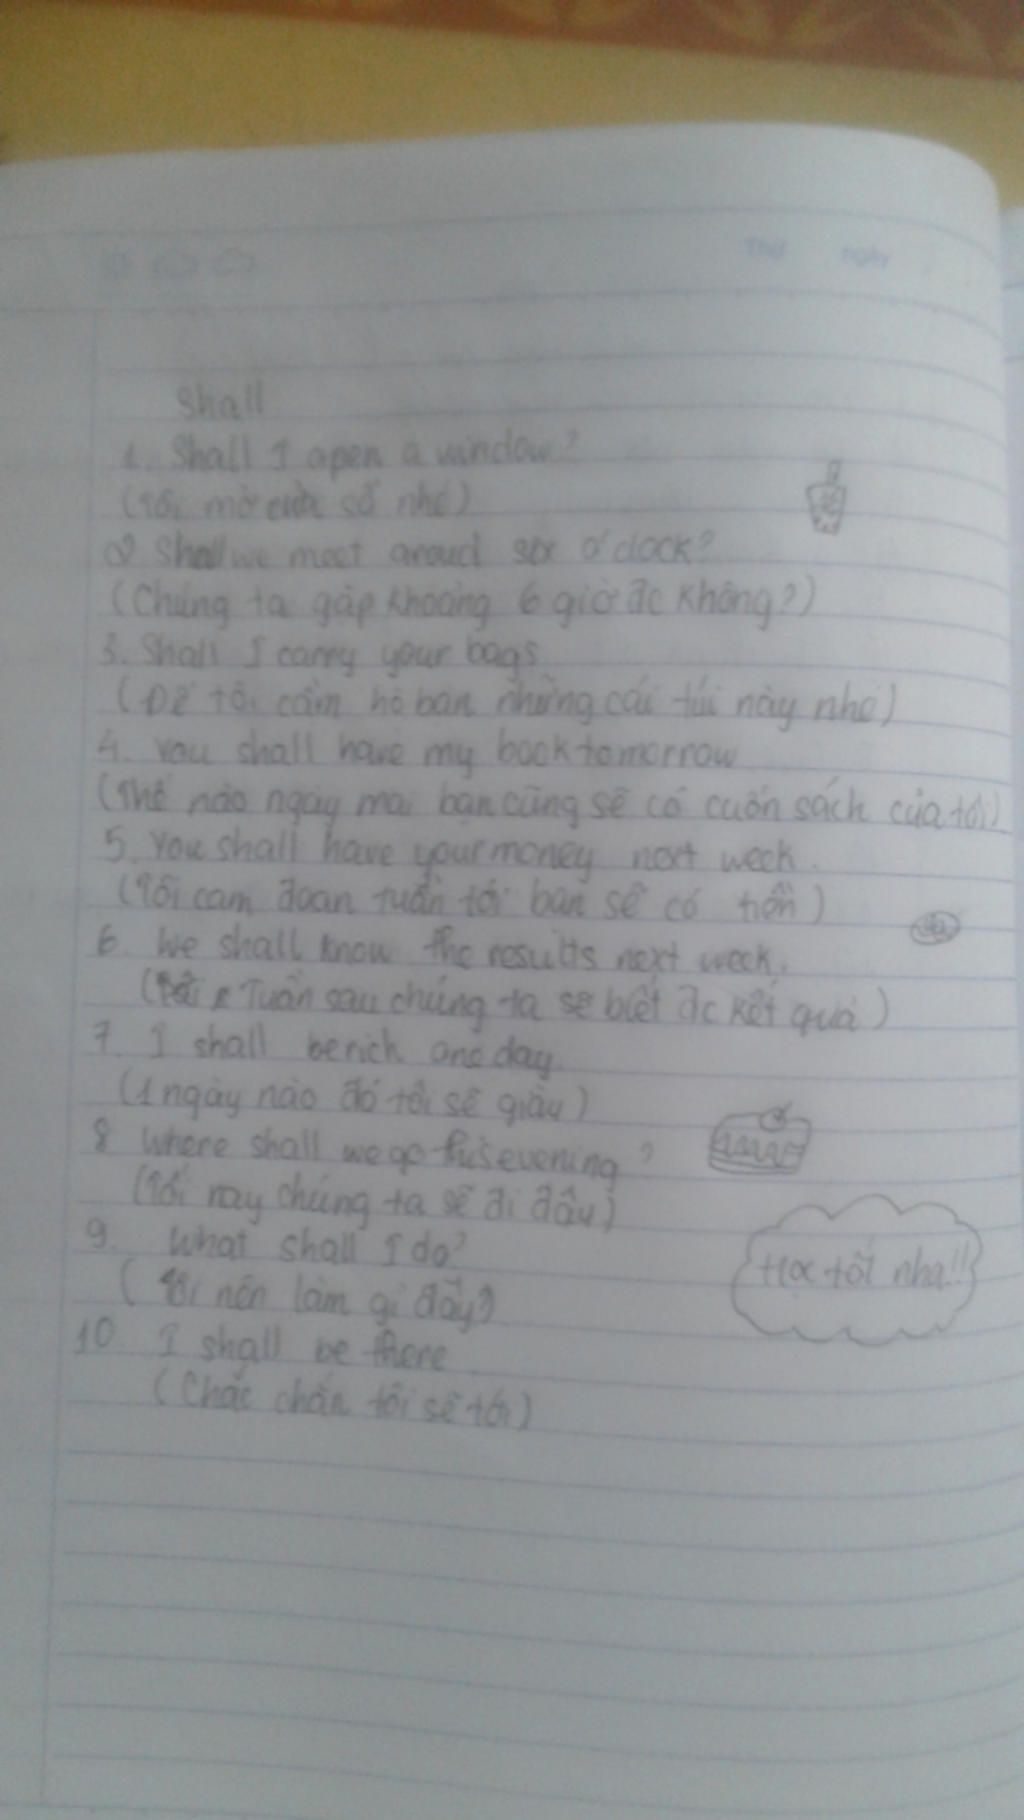 Thứ ngày
Shall
1. Shall I open a window?
(Tôi mở cửa sổ nhé)
2 Shall we meet aroud six o'clock?
(Chúng ta gặp khoảng 6 giờ đc không?)
3. Shall I carry your bags
(Để tôi cầm hộ bạn những cái túi này nhé)
4. You shall have my book tomorrow
(Thế nào ngày mai bạn cũng sẽ có cuốn sách của tôi)
5. You shall have your money next week.
(Tôi cam đoan tuần tới bạn sẽ có tiền)
6. We shall know the results next week.
(Tuần sau chúng ta sẽ biết đc kết quả)
7. I shall be rich one day.
(1 ngày nào đó tôi sẽ giàu)
8 Where shall we go this evening?
(Tối nay chúng ta sẽ đi đâu)
9. What shall I do?
(Tôi nên làm gì đây?)
Học tốt nha!!
10. I shall be there
(Chắc chắn tôi sẽ tới)